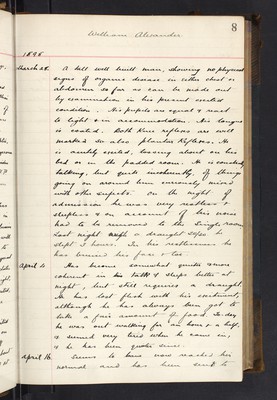 8
William Alexander
1898
March 28. A tall well built man, showing no physical
signs of organic disease in either chest or
abdomen so far as can be made out
by examination in his present excited
condition. His pupils are equal & react
to light & in accommodation. His tongue
is coated. Both knee reflexes are well
marked so also plantar Reflexes. He
is acutely excited, tossing about on his
bed or in the padded room. He is constantly
talking, but quite incoherently, of things
going on around him curiously mixed
with other subjects. On the night of
admission he was very restless &
sleepless & on account of his noise
had to be removed to the Single room
Last night a draught he
slept 3 hours. In his restlessness he
has bruised his face & toe.
April 4. Has become somewhat quieter & more
coherent in his talk & sleeps better at
night, but still requires a draught.
He has lost flesh with his excitement,
although he has always been got to
take a fair amount of food. To-day
he was out walking for an hour & a half,
& seemed very tired when he came in,
& he has been quieter since.
April 16. Seems to have now reached his
normal and has been sent to